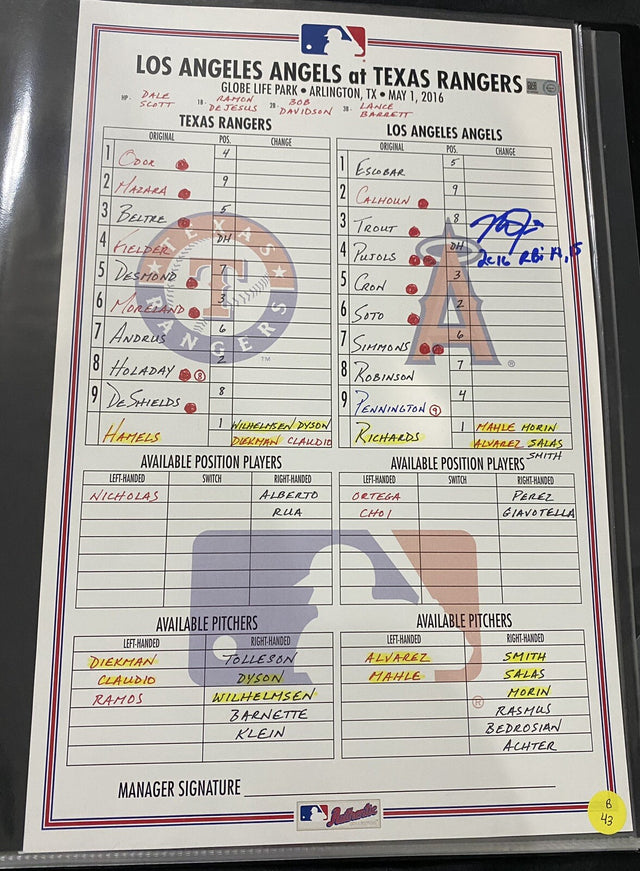 LOS ANGELES ANGELS at TEXAS RANGERS
GLOBE LIFE PARK • ARLINGTON, TX • MAY 1, 2016
HP - DALE SCOTT 1B - RAMON DEJESUS 2B - BOB DAVIDSON 3B - LANCE BARRETT
TEXAS RANGERS
ORIGINAL POS. CHANGE
1 ODOR 4
2 MAZARA 9
3 BELTRE 5
4 FIELDER DH
5 DESMOND 7
6 MORELAND 3
7 ANDRUS 6
8 HOLADAY 8 2
9 DESHIELDS 8
HAMELS 1 WILHELMSEN DYSON
DIEKMAN CLAUDIO
TEXAS RANGERS
T
TM
LOS ANGELES ANGELS
ORIGINAL POS. CHANGE
1 ESCOBAR 5
2 CALHOUN 9
3 TROUT 8
4 PUJOLS DH
2016 RBI 14, 15
5 CRON 3
6 SOTO 2
7 SIMMONS 6
8 ROBINSON 7
9 PENNINGTON 9 4
RICHARDS 1 MAHLE MORIN
ALVAREZ SALAS
SMITH
A
®
AVAILABLE POSITION PLAYERS
LEFT-HANDED SWITCH RIGHT-HANDED
NICHOLAS ALBERTO
RUA
AVAILABLE POSITION PLAYERS
LEFT-HANDED SWITCH RIGHT-HANDED
ORTEGA PEREZ
CHOI GIAVOTELLA
AVAILABLE PITCHERS
LEFT-HANDED RIGHT-HANDED
DIEKMAN TOLLESON
CLAUDIO DYSON
RAMOS WILHELMSEN
BARNETTE
KLEIN
AVAILABLE PITCHERS
LEFT-HANDED RIGHT-HANDED
ALVAREZ SMITH
MAHLE SALAS
MORIN
®
RASMUS
BEDROSIAN
ACHTER
MANAGER SIGNATURE
Authentic
B
43